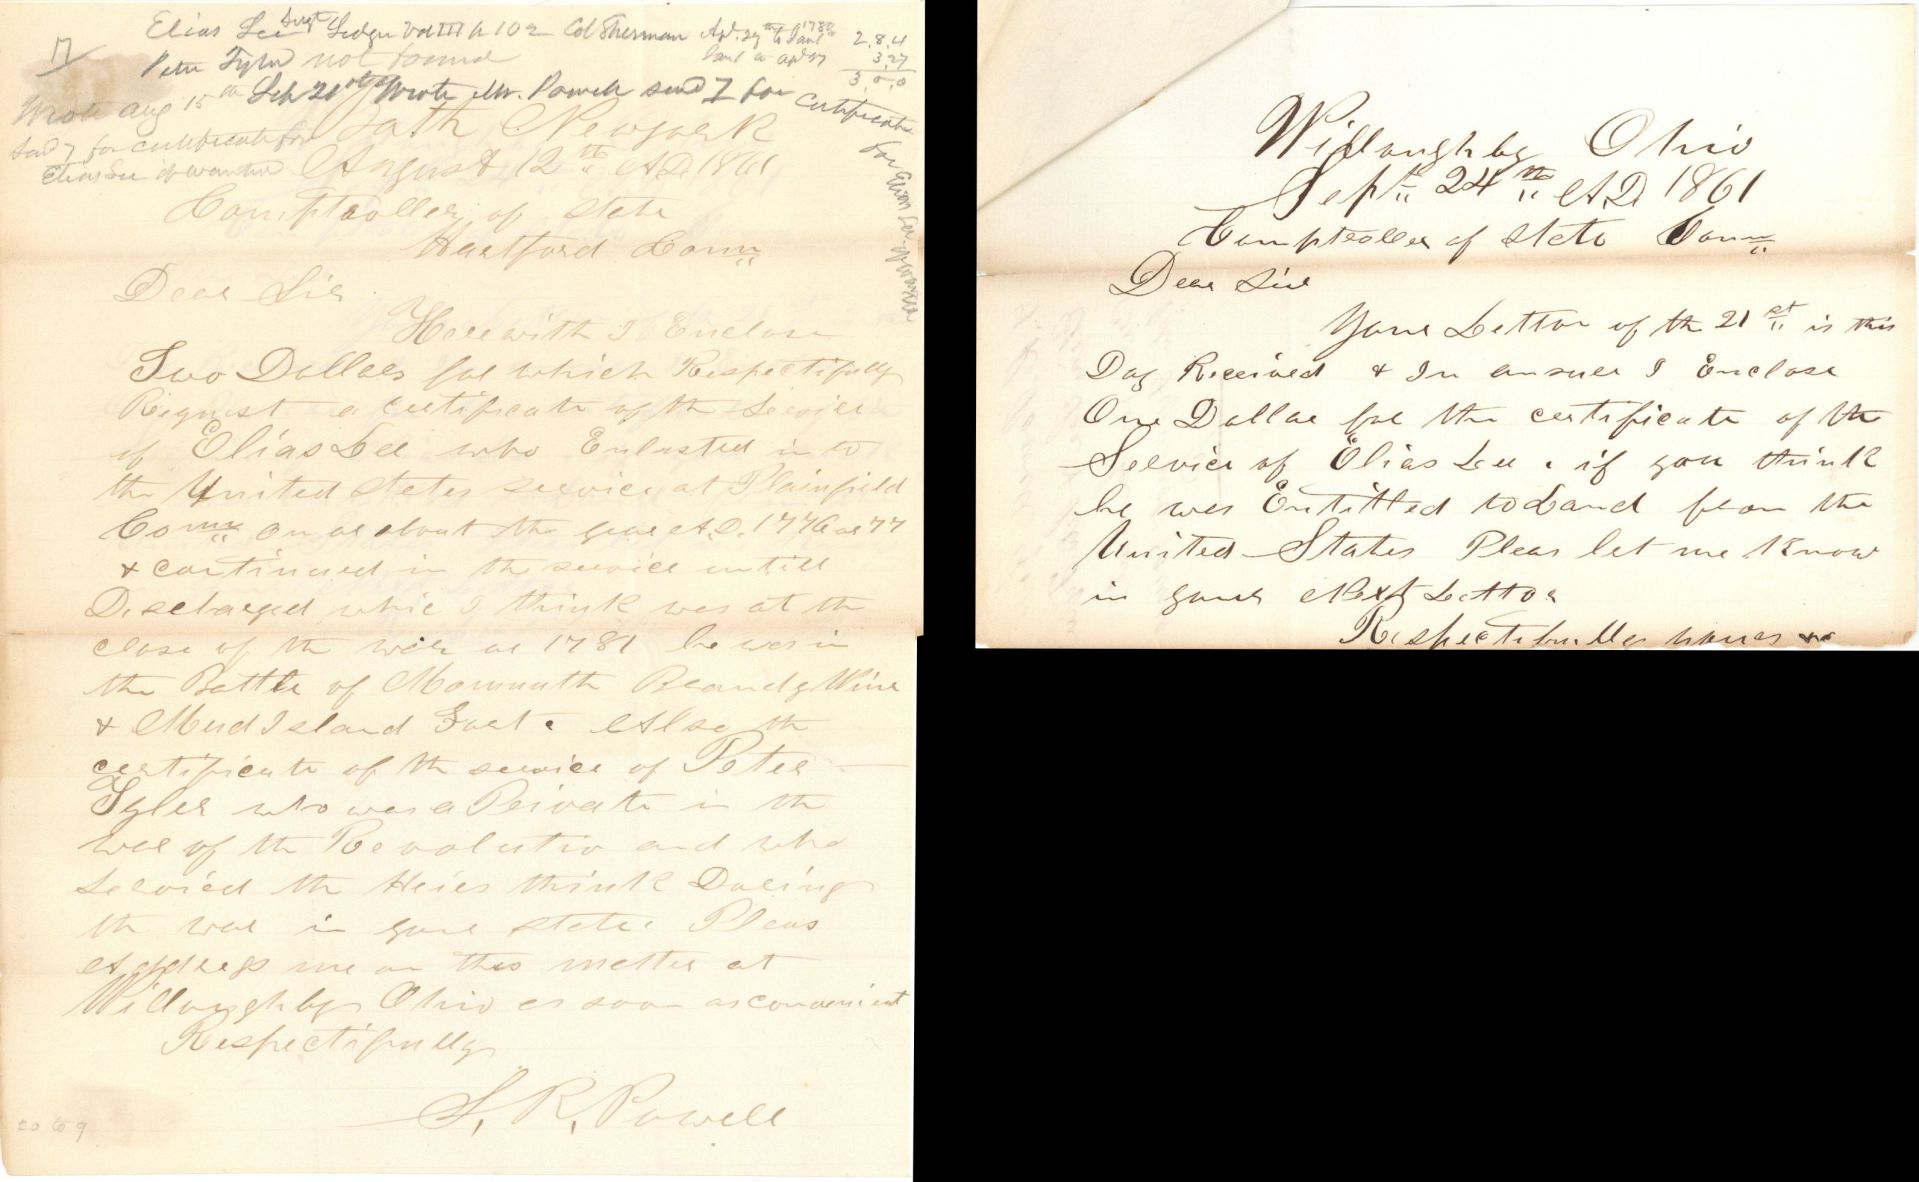 17
Elias Lee Sergt Ledger Vol III p 102 Col Sherman Apl. 29th to Janl 1780
Peter Tyler not found
2.8.4
3.27
3.0.0
Wrote Aug 15th Sep 21st Wrote Mr. Powell send 7 for certificate
for Elias Lee if wanted
send 7 for certificate for
Elias Lee if wanted
Bath Newyork
August 12th A.D. 1861
Comptroller of State
Hartford Conn
Dear Sir
Herewith I Enclose
Two Dollars for which Respectifully
Request a certificate of the Service
of Elias Lee who Enlisted in to
the United States service at Plainfield
Conn on or about the year A.D. 1776 or 77
& continued in the service untill
Discharged whic I think was at the
close of the war or 1781 he was in
the Battle of Monmouth Brandy Wine
& Mud Island Fort. Also the
certificate of the service of Peter
Tyler who was a Private in the
war of the Revolutio and who
servied the Heirs think During
the war in your state. Pleas
Address me on this matter at
Willoughby Ohio as soon as convenient
Respectifully
S. R. Powell
20 to 9
Willoughby Ohio
Sept 24th A.D. 1861
Comptroller of State Conn
Dear Sir
Your Letter of the 21st is this
Day Received & In answer I Enclose
One Dollar for the certificate of the
Service of Elias Lee. if you think
he was Entitled to Land from the
United States Pleas let me Know
in your Next Letter
Respectifully yours